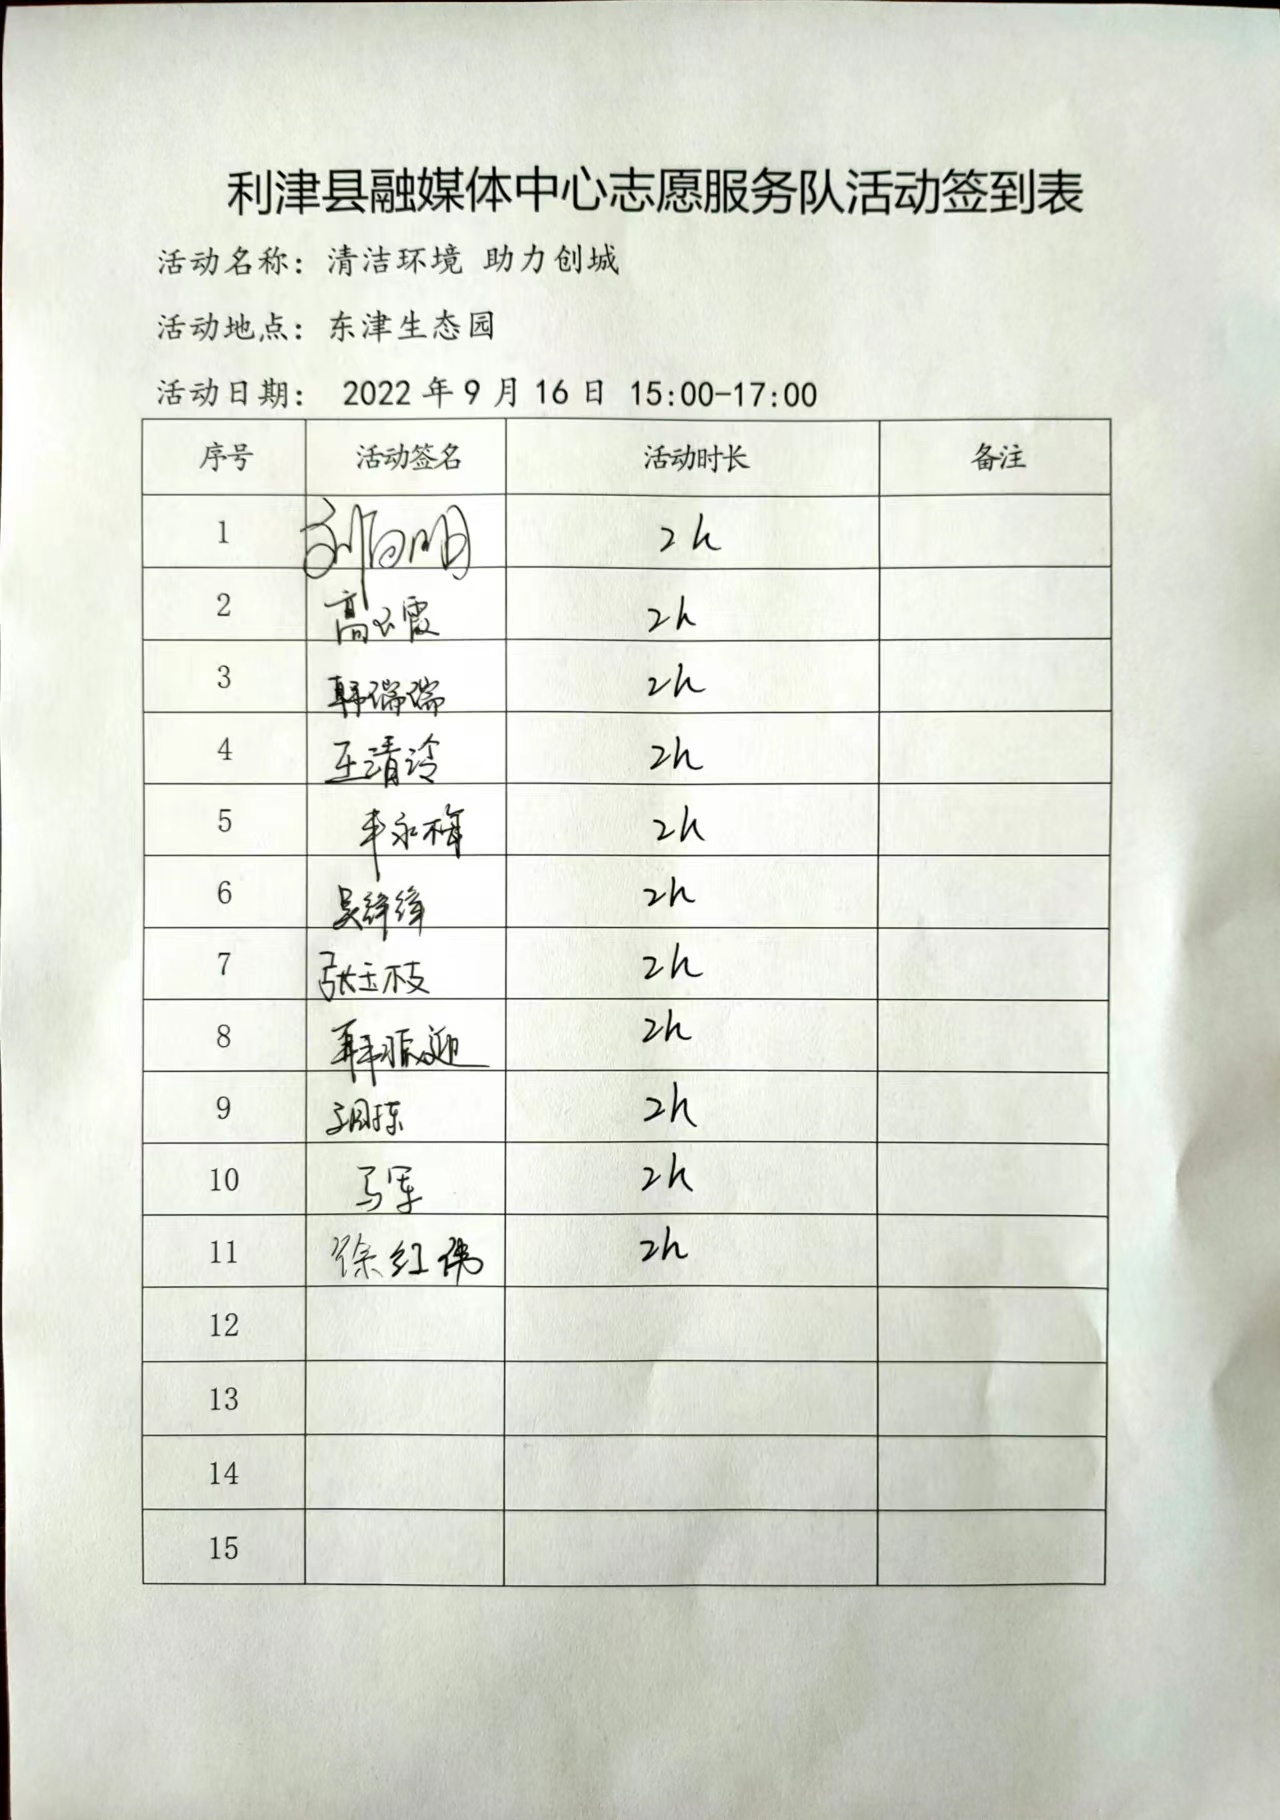 利津县融媒体中心志愿服务队活动签到表
活动名称：清洁环境 助力创城
活动地点：东津生态园
活动日期： 2022 年 9 月 16 日 15:00-17:00
序号 活动签名 活动时长 备注
1 2h
2 高云霞 2h
3 韩瑞瑞 2h
4 王清泠 2h
5 永梅 2h
6 吴 2h
7 张玉枝 2h
8 韩振迎 2h
9 2h
10 马军 2h
11 徐红伟 2h
12
13
14
15